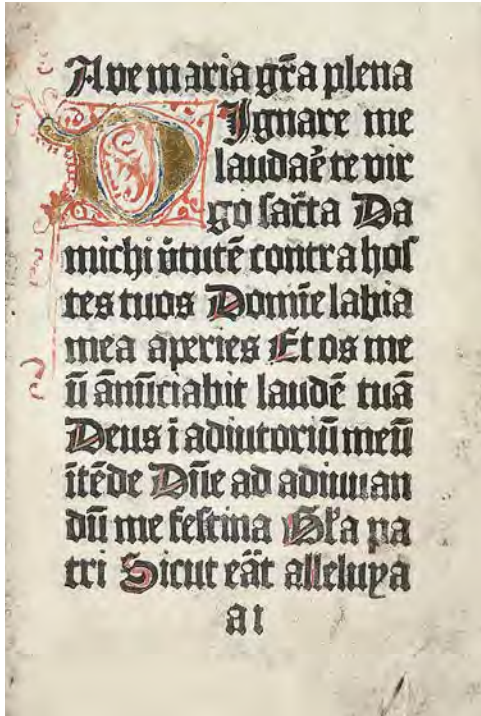 Ave maria gr̄a plena
DIgnare me
laudar̄e te vir
go sac̄ta Da
michi v̄tutē contra hos
tes tuos Domīe labia
mea aperies Et os me
ū ānūciabit laudē tuā
Deus ī adiutoriū meū
ītēde Dn̄e ad adiuuan
dū me festina Gl̄ia pa
tri Sicut eār̄t alleluya
a i